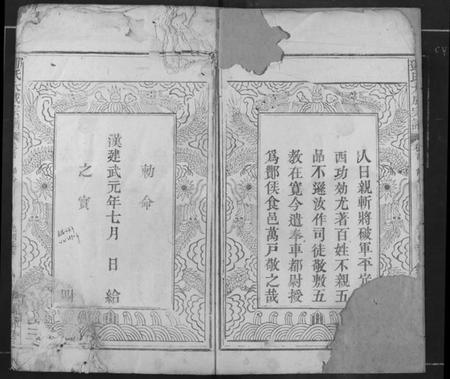 人日親斬將破軍平定
西功効尤著百姓不親五
品不遜汝作司徒敬敷五
教在寬今遣奉車都尉授
爲酇侯食邑萬戶敬之哉
勅命
漢建武元年七月 日給
之寶